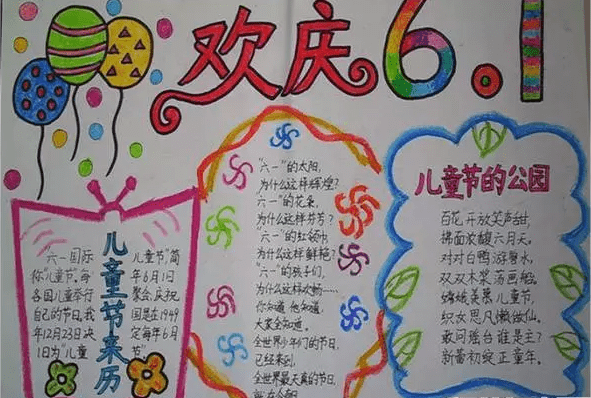 欢庆6.1
儿童节来历
六一国际
你"儿童节。每
各国儿童举行
自己的节日。我
年12月23日决
1日为"儿童
儿童节"简
年6月1日
聚会,庆祝
国是在1949
定每年6月
节"
"六一"的太阳,
为什么这样辉煌?
"六一"的花朵,
为什么这样芬芳?
"六一"的红领巾
为什么这样鲜艳?
"六一"的孩子们,
为什么这样欢畅……
你知道 他知道,
大家全知道。
全世界少年们的节日,
已经来到,
全世界最天真的节日,
儿童节的公园
百花开放笑声甜,
拂面浓馥六月天。
对对白鸭游碧水,
双双木桨荡画船。
嫦娥羡慕儿童节,
织女思凡懒做仙。
敢问瑶台谁是主?
新蕾初绽正童年。